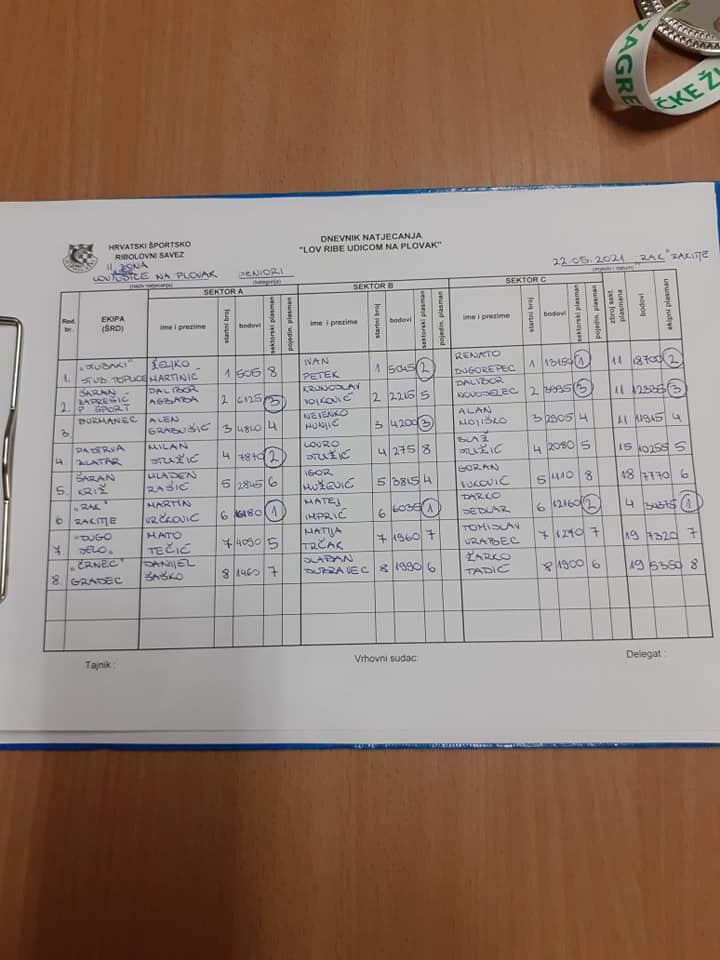 ZAGRE
ČKE Ž
HRVATSKI ŠPORTSKO
RIBOLOVNI SAVEZ
DNEVNIK NATJECANJA
"LOV RIBE UDICOM NA PLOVAK"
II ZONA
LOV UDICE NA PLOVAK SENIORI
22.05.2021 „RAK" RAKITJE
(naziv natjecanja) (kategorija) (mjesto i datum)
SEKTOR A SEKTOR B SEKTOR C
Red. br. EKIPA (ŠRD) ime i prezime startni broj bodovi sektorski plasman pojedin. plasman ime i prezime startni broj bodovi sektorski plasman pojedin. plasman ime i prezime startni broj bodovi sektorski plasman pojedin. plasman zbroj sekt. plasmana bodovi ekipni plasman
1. „STUBAKI" STUB.TOPLICE ŽELJKO MARTINIĆ 1 505 8 IVAN PETEK 1 5045 2 RENATO DUGOREPEC 1 13150 1 11 18700 2
2. ŠARAN ZAPREŠIĆ P. SPORT DALIBOR AGBABA 2 6125 3 KRUNOSLAV IVKOVIĆ 2 2215 5 DALIBOR NOVOSELEC 2 3995 3 11 12335 3
3. ĐURMANEC ALEN GRABUŠIĆ 3 4810 4 NEVENKO HUNJIĆ 3 4200 3 ALAN 3 2905 4 11 11915 4
4. PASTRVA ZLATAR MILAN STUŽIĆ 4 7870 2 LOVRO STUŽIĆ 4 275 8 BLAŽ STUŽIĆ 4 2080 5 15 10255 5
5. ŠARAN KRIŽ MLADEN RAŠIĆ 5 2845 6 IGOR MUŽEVIĆ 5 3815 4 GORAN VUKOVIĆ 5 1110 8 18 7770 6
6 „RAK" RAKITJE MARTIN VRČKOVIĆ 6 16180 1 MATEJ IMPRIĆ 6 6035 1 DARKO SEDLAR 6 12160 2 4 34375 1
7. "DUGO SELO„ MATO TEČIĆ 7 4090 5 MATIJA TRČAK 7 1960 7 TOMISLAV VRABEC 7 1270 7 19 7320 7
8. „ČRNEC" GRADEC DANIJEL ŠAŠKO 8 1460 7 SLAĐAN DUBRAVEC 8 1990 6 ŽARKO TADIĆ 8 1900 6 19 5350 8
Tajnik : Vrhovni sudac: Delegat :